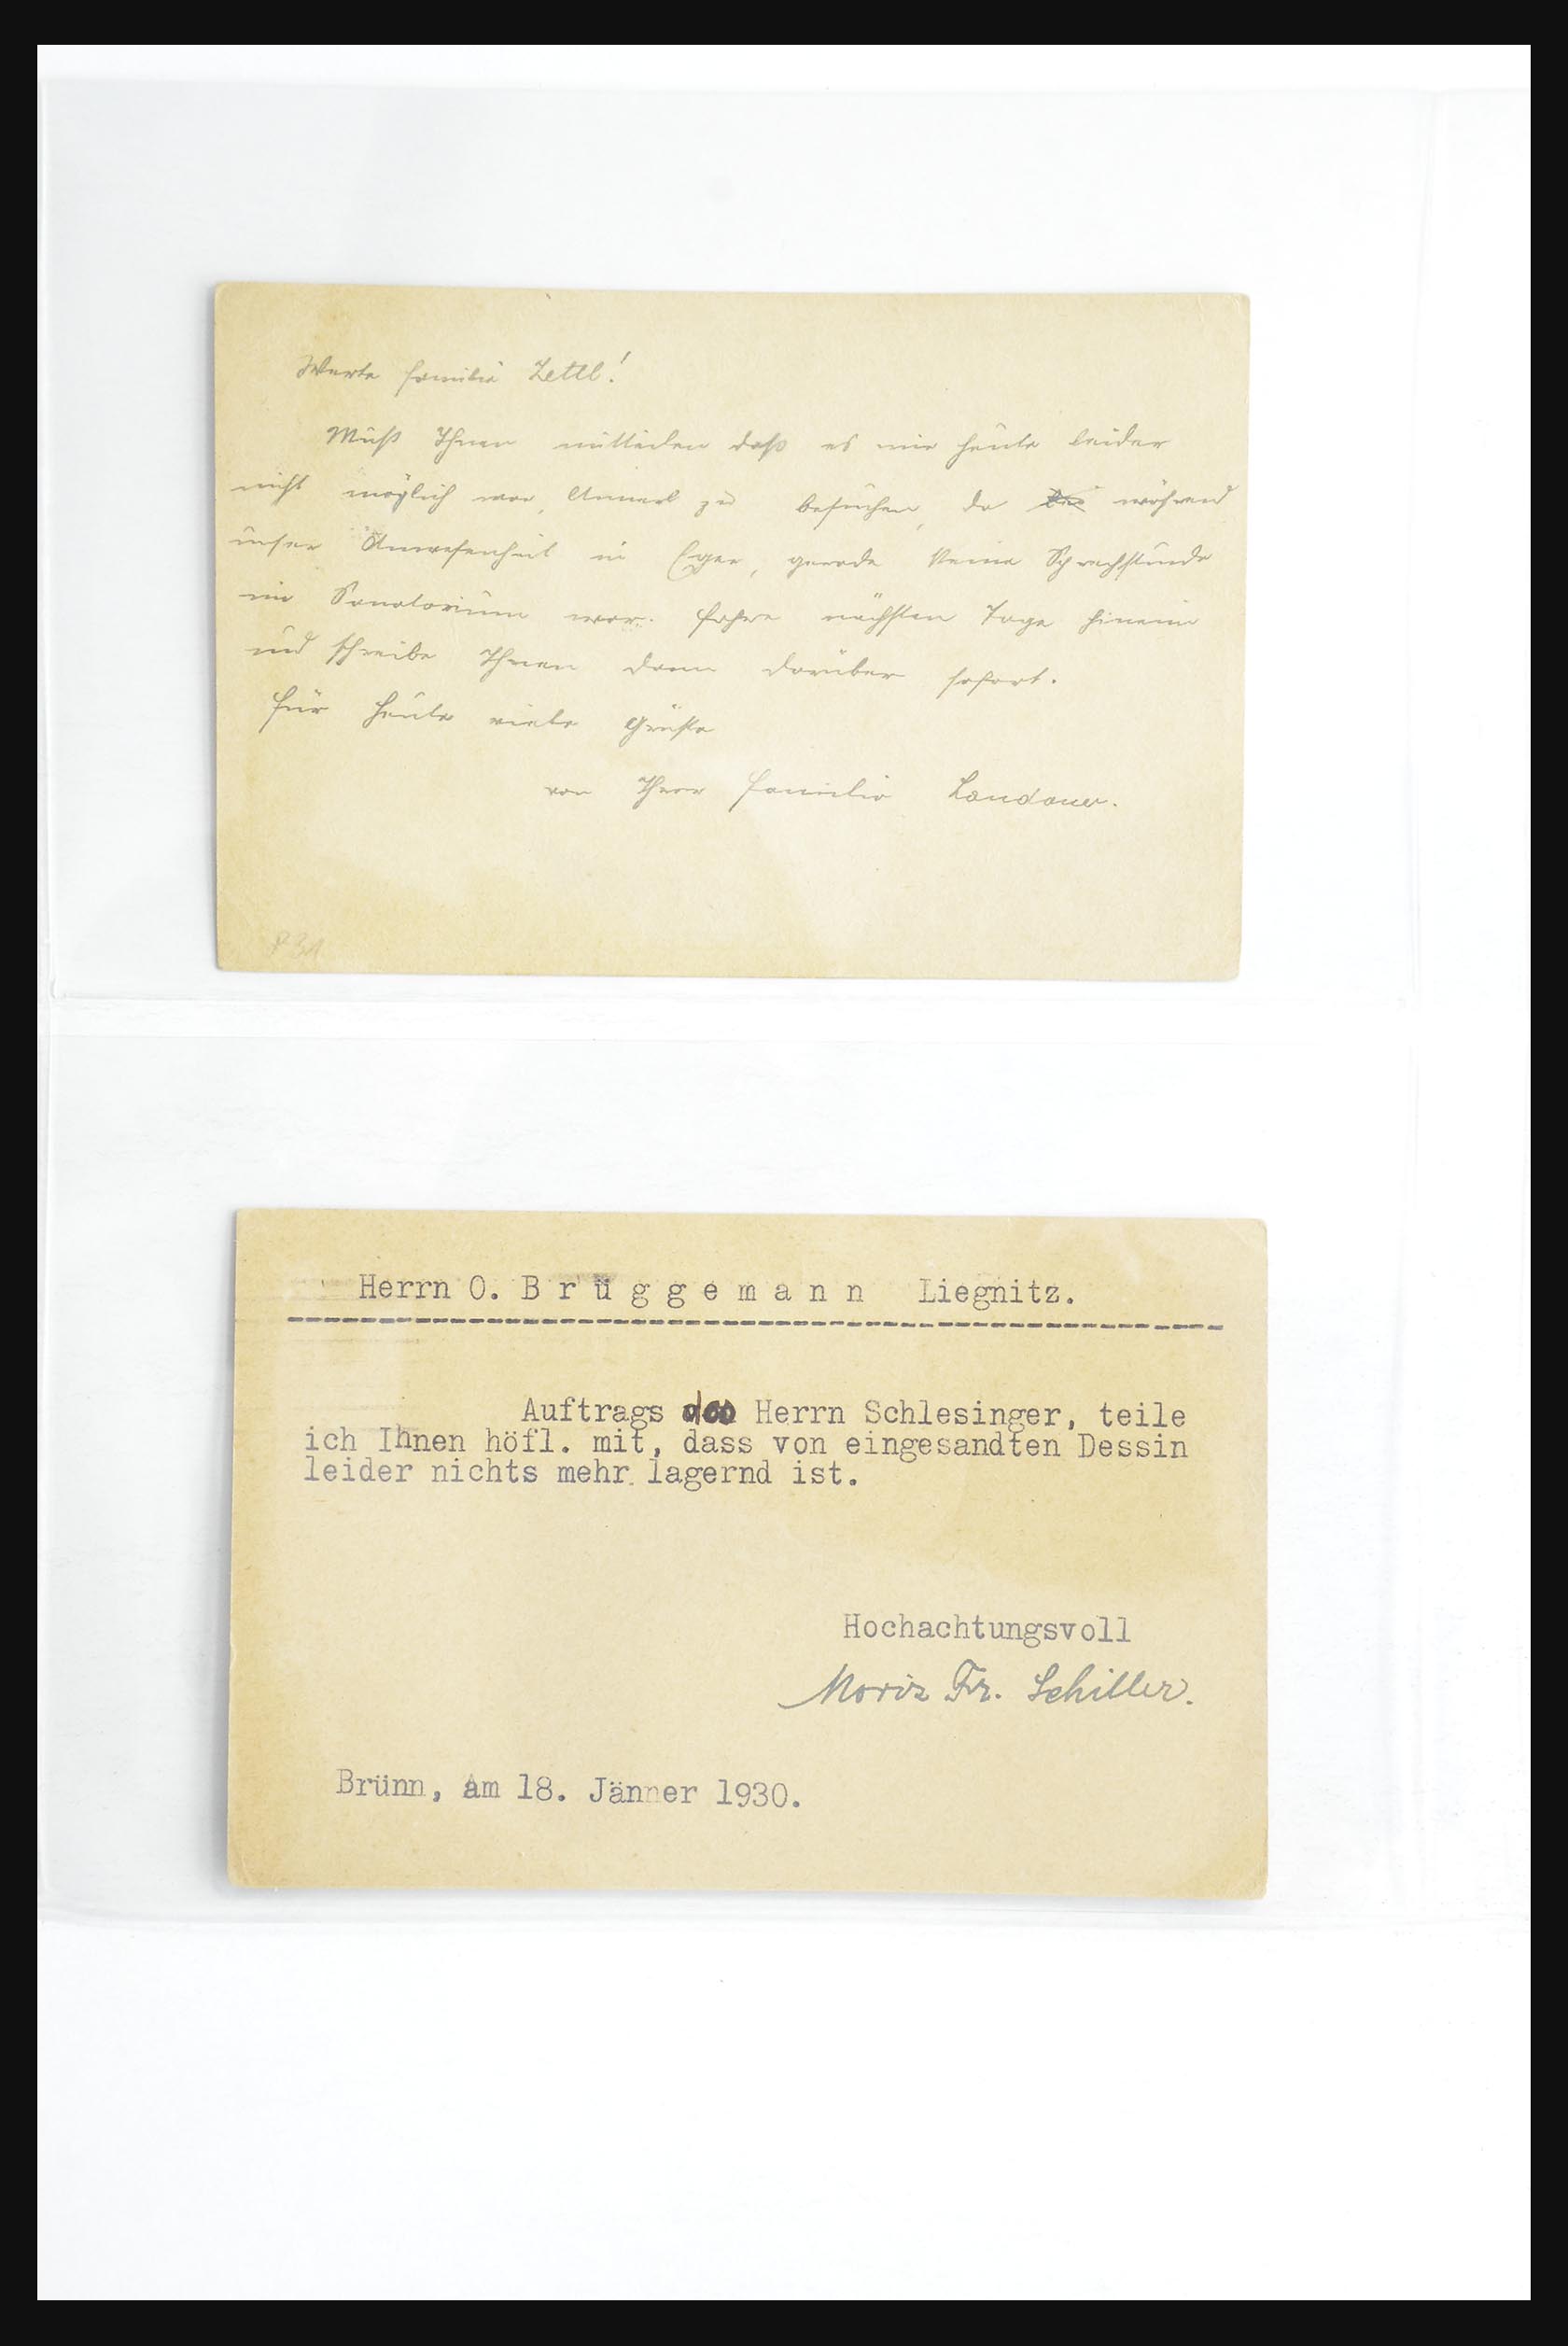 Werte Familie Zettl!
Muß Ihnen mitteilen daß es mir heute leider
nicht möglich war, Annerl zu besuchen, da während
unser Anwesenheit in Eger, gerade keine Sprechstunde
im Sanatorium war. Fahre nächsten Tage hinein
und schreibe Ihnen dann darüber sofort.
Für heute viele Grüße
von Ihrer Familie Landauer.
P31
Herrn O. Brüggemann Liegnitz.
Auftrags des Herrn Schlesinger, teile
ich Ihnen höfl. mit, dass von eingesandten Dessin
leider nichts mehr lagernd ist.
Hochachtungsvoll
Moriz Fr. Schiller.
Brünn, am 18. Jänner 1930.